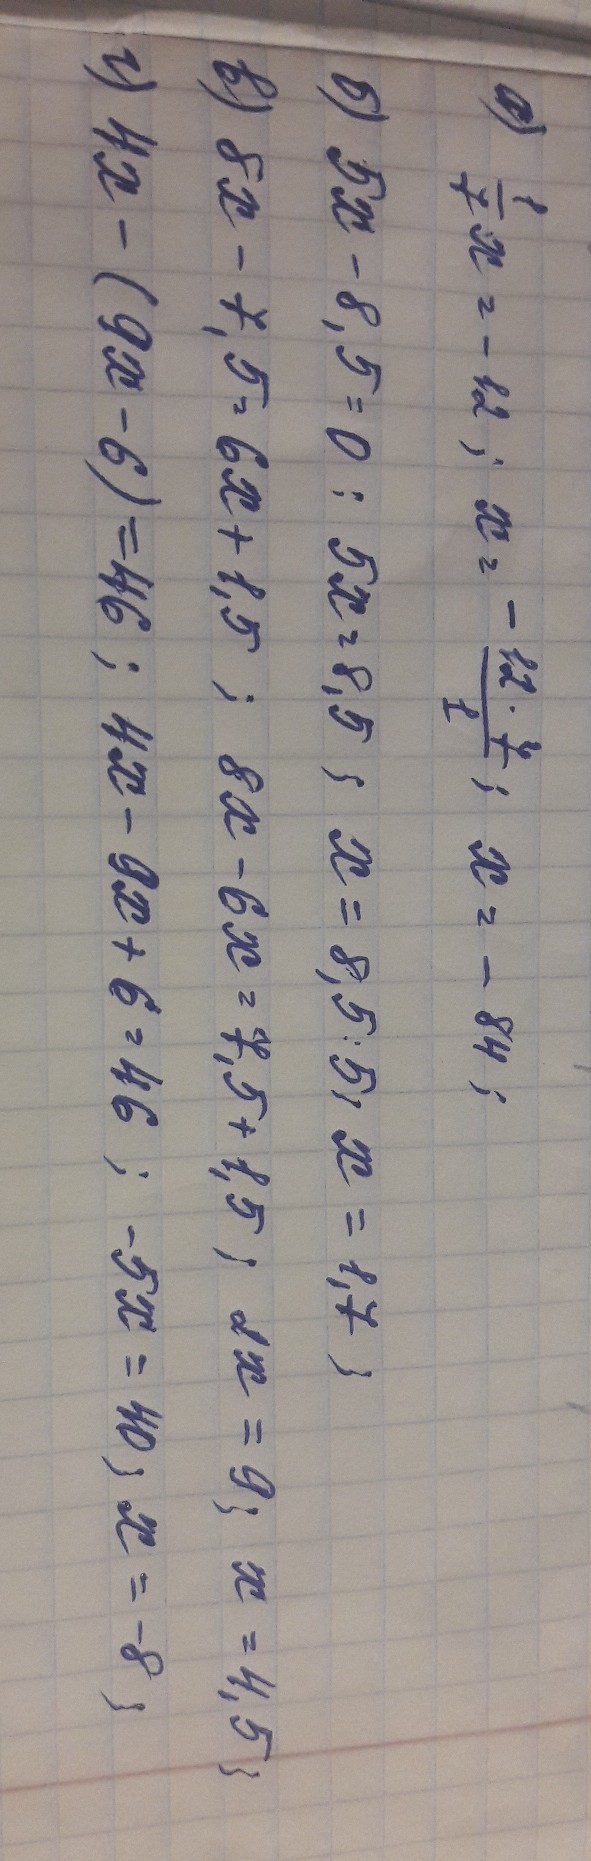 а) 1/7 x = -12; x = -12·7/1; x = -84;
б) 5x - 8,5 = 0; 5x = 8,5; x = 8,5:5; x = 1,7;
в) 8x - 7,5 = 6x + 1,5; 8x - 6x = 7,5 + 1,5; 2x = 9; x = 4,5;
г) 4x - (9x - 6) = 46; 4x - 9x + 6 = 46; -5x = 40; x = -8;